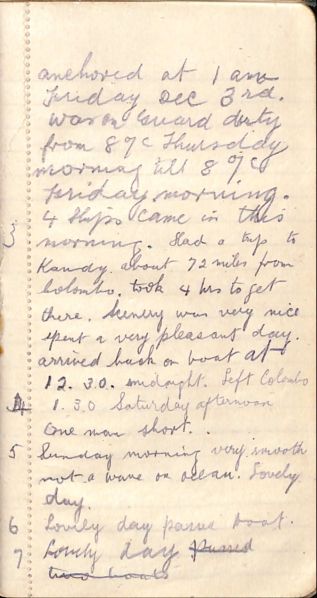 anchored at 1 am
Friday Dec 3rd.
Was on Guard duty
from 8 o'c Thursday
morning till 8 o'c
Friday morning.
4 ships came in this
morning. Had a trip to
Kandy. about 72 miles from
Colombo. took 4 hrs to get
there. Scenery was very nice
spent a very pleasant day.
arrived back on boat at
12.30. midnight. Left Colombo
4 1.30 Saturday afternoon
One man short.
5 Sunday morning very smooth
not a wave on ocean. Lovely
day.
6 Lovely day passed boat.
7 Lovely day passed
two boats